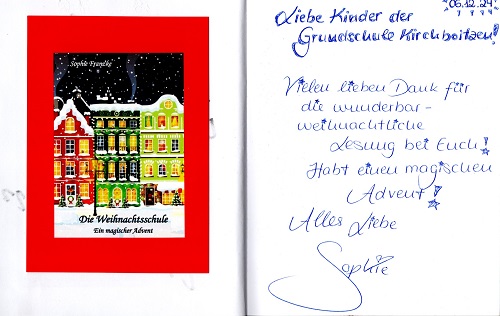 Sophie Francke
Die Weihnachtsschule
Ein magischer Advent
06.12.24
Liebe Kinder der
Grundschule Kirchboitzen!
Vielen lieben Dank für
die wunderbar-
weihnachtliche
Lesung bei Euch!
Habt einen magischen
Advent!
Alles Liebe
Sophie